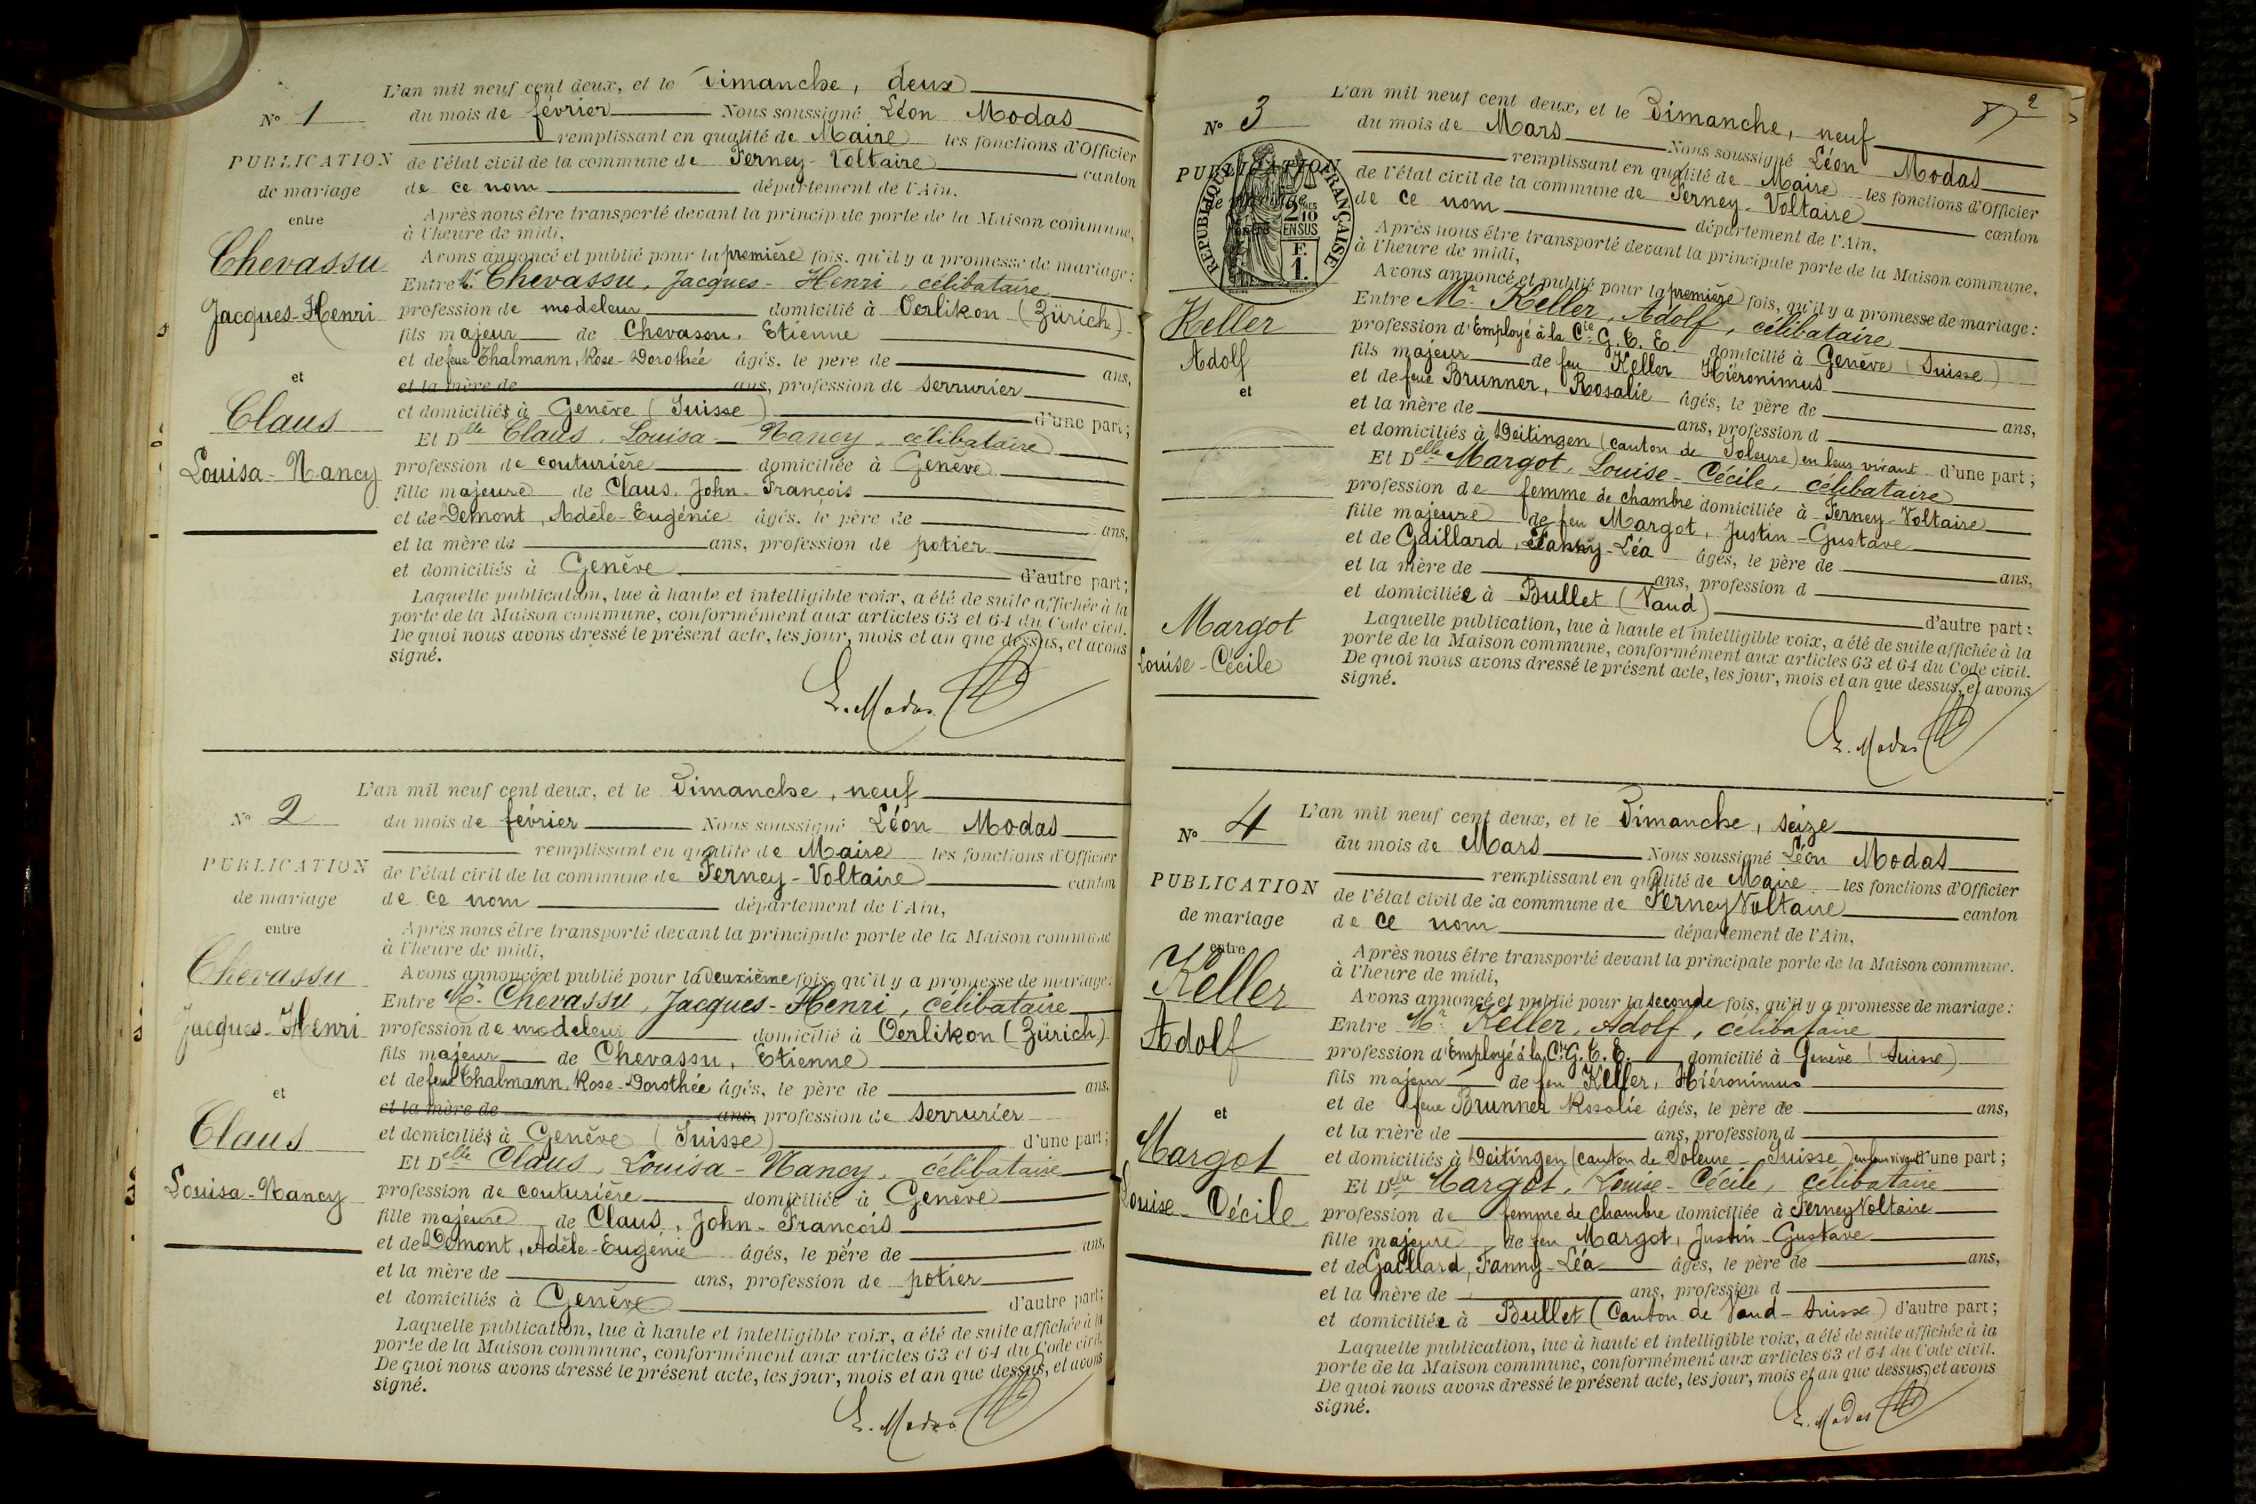 L'an mil neuf cent deux, et le Dimanche, deux
N° 1
du mois de février Nous soussigné Léon Modas
remplissant en qualité de Maire les fonctions d'Officier
PUBLICATION
de l'état civil de la commune de Ferney-Voltaire canton
de mariage
de ce nom département de l'Ain.
entre
Après nous être transporté devant la principale porte de la Maison commune,
à l'heure de midi,
Chevassu
Avons annoncé et publié pour la première fois, qu'il y a promesse de mariage :
Entre Mr Chevassu, Jacques-Henri, célibataire
Jacques-Henri
profession de modeleur domicilié à Oerlikon (Zürich)
fils majeur de Chevassu, Etienne
et de feue Thalmann, Rose-Dorothée âgés, le père de ans,
et
et la mère de ans, profession de serrurier
Claus
et domiciliés à Genève (Suisse) d'une part;
Et Delle Claus, Louisa-Nancy, célibataire
Louisa-Nancy
profession de couturière domiciliée à Genève
fille majeure de Claus, John-François
et de Demont, Adèle-Eugénie âgés, le père de ans,
et la mère de ans, profession de potier
et domiciliés à Genève d'autre part;
Laquelle publication, lue à haute et intelligible voix, a été de suite affichée à la
porte de la Maison commune, conformément aux articles 63 et 64 du Code civil.
De quoi nous avons dressé le présent acte, les jour, mois et an que dessus, et avons
signé.
L. Modas
L'an mil neuf cent deux, et le Dimanche, neuf
N° 2
du mois de février Nous soussigné Léon Modas
remplissant en qualité de Maire les fonctions d'Officier
PUBLICATION
de l'état civil de la commune de Ferney-Voltaire canton
de mariage
de ce nom département de l'Ain,
entre
Après nous être transporté devant la principale porte de la Maison commune
à l'heure de midi,
Chevassu
Avons annoncé et publié pour la deuxième fois, qu'il y a promesse de mariage:
Entre Mr Chevassu, Jacques-Henri, célibataire
Jacques-Henri
profession de modeleur domicilié à Oerlikon (Zürich)
fils majeur de Chevassu, Etienne
et de feue Thalmann, Rose-Dorothée âgés, le père de ans,
et
et la mère de ans, profession de serrurier
Claus
et domiciliés à Genève (Suisse) d'une part;
Et Delle Claus, Louisa-Nancy, célibataire
Louisa-Nancy
profession de couturière domiciliée à Genève
fille majeure de Claus, John-François
et de Demont, Adèle-Eugénie âgés, le père de ans,
et la mère de ans, profession de potier
et domiciliés à Genève d'autre part;
Laquelle publication, lue à haute et intelligible voix, a été de suite affichée à la
porte de la Maison commune, conformément aux articles 63 et 64 du Code civil.
De quoi nous avons dressé le présent acte, les jour, mois et an que dessus, et avons
signé.
L. Modas
2
L'an mil neuf cent deux, et le Dimanche, neuf
N° 3
du mois de Mars Nous soussigné Léon Modas
remplissant en qualité de Maire les fonctions d'Officier
PUBLICATION
de l'état civil de la commune de Ferney-Voltaire canton
de mariage
de ce nom département de l'Ain,
entre
RÉPUBLIQUE FRANÇAISE
2/10 EN SUS
F. 1.
Après nous être transporté devant la principale porte de la Maison commune,
à l'heure de midi,
Avons annoncé et publié pour la première fois, qu'il y a promesse de mariage :
Entre Mr Keller, Adolf, célibataire
Keller
profession d'Employé à la Cie G. T. E. domicilié à Genève (Suisse)
Adolf
fils majeur de feu Keller Hiéronimus
et de feue Brunner, Rosalie âgés, le père de ans,
et
et la mère de ans, profession d
et domiciliés à Deitingen (canton de Soleure) en leur vivant d'une part;
Et Delle Margot, Louise-Cécile, célibataire
profession de femme de chambre domiciliée à Ferney-Voltaire
fille majeure de feu Margot, Justin-Gustave
et de Gaillard, Fanny-Léa âgés, le père de ans,
et la mère de ans, profession d
et domiciliée à Bullet (Vaud) d'autre part;
Margot
Louise-Cécile
Laquelle publication, lue à haute et intelligible voix, a été de suite affichée à la
porte de la Maison commune, conformément aux articles 63 et 64 du Code civil.
De quoi nous avons dressé le présent acte, les jour, mois et an que dessus, et avons
signé.
L. Modas
L'an mil neuf cent deux, et le Dimanche, seize
N° 4
du mois de Mars Nous soussigné Léon Modas
remplissant en qualité de Maire les fonctions d'Officier
PUBLICATION
de l'état civil de la commune de Ferney Voltaire canton
de mariage
de ce nom département de l'Ain,
entre
Après nous être transporté devant la principale porte de la Maison commune.
à l'heure de midi,
Keller
Avons annoncé et publié pour la seconde fois, qu'il y a promesse de mariage :
Entre Mr Keller, Adolf, célibataire
Adolf
profession d'Employé à la Cie G. T. E. domicilié à Genève (Suisse)
fils majeur de feu Keller, Hiéronimus
et de feue Brunner Rosalie âgés, le père de ans,
et
et la mère de ans, profession d
Margot
et domiciliés à Deitingen (canton de Soleure - Suisse) en leur vivant d'une part;
Et Delle Margot, Louise-Cécile, célibataire
Louise-Cécile
profession de femme de chambre domiciliée à Ferney Voltaire
fille majeure de feu Margot, Justin-Gustave
et de Gaillard, Fanny-Léa âgés, le père de ans,
et la mère de ans, profession d
et domiciliée à Bullet (Canton de Vaud - Suisse) d'autre part;
Laquelle publication, lue à haute et intelligible voix, a été de suite affichée à la
porte de la Maison commune, conformément aux articles 63 et 64 du Code civil.
De quoi nous avons dressé le présent acte, les jour, mois et an que dessus, et avons
signé.
L. Modas